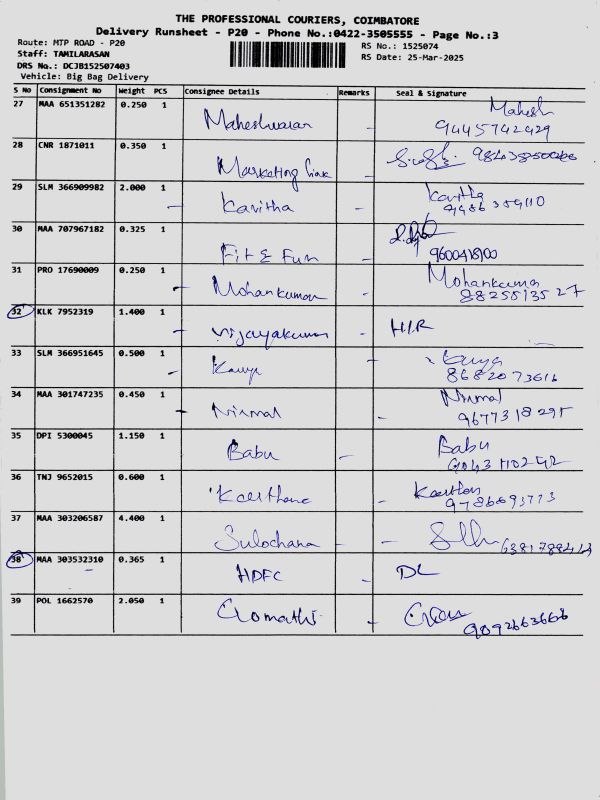 THE PROFESSIONAL COURIERS, COIMBATORE
Delivery Runsheet - P20 - Phone No.:0422-3505555 - Page No.:3
Route: MTP ROAD - P20
Staff: TAMILARASAN
DRS No.: DCJB152507403
Vehicle: Big Bag Delivery
RS No.: 1525074
RS Date: 25-Mar-2025
S No Consignment No Weight PCS Consignee Details Remarks Seal & Signature
27 MAA 651351282 0.250 1 Maheshwaran - Mahesh
9445742429
28 CNR 1871011 0.350 1 Marketing -
29 SLM 366909982 2.000 1 - Kavitha - Kavitha
30 MAA 707967182 0.325 1 Fit & Fun -
9600418100
31 PRO 17690009 0.250 1 - Mohankumar - Mohankumar
8825513527
32 KLK 7952319 1.400 1 - Vijayakumar - H/R
33 SLM 366951645 0.500 1 - Kavya - Kavya
8682073616
34 MAA 301747235 0.450 1 - Nirmal - Nirmal
9677318295
35 DPI 5300045 1.150 1 Babu - Babu
36 TNJ 9652015 0.600 1 -
9786693773
37 MAA 303206587 4.400 1 Sulochana -
38 MAA 303532310 0.365 1 HDFC - DL
39 POL 1662570 2.050 1 Gomathi -
9092663666